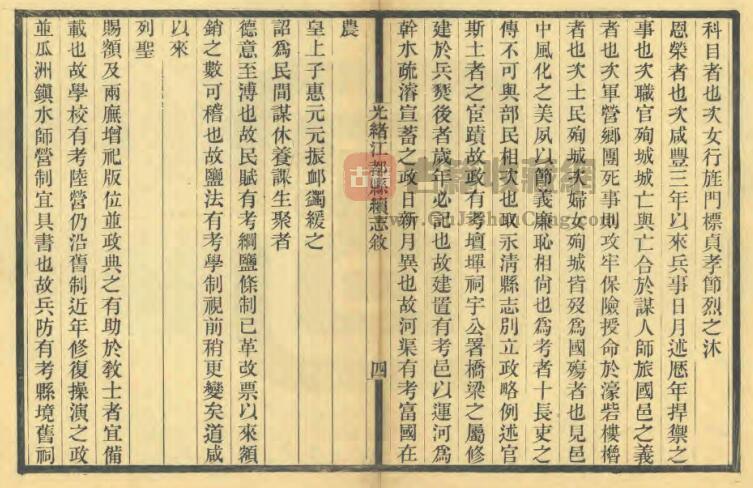 科目者也次女行旌門標貞孝節烈之沐
恩榮者也次咸豐三年以來兵事日月述歷年捍禦之
事也次職官殉城城亡與亡合於謀人師旅國邑之義
者也次軍營鄉團死事則攻牢保險授命於濠砦樓櫓
者也次士民殉城次婦女殉城皆歿為國殤者也見邑
中風化之美夙以節義廉恥相尚也為考者十長吏之
傳不可與部民相次也取永清縣志別立政略例述官
斯土者之宦蹟故政有考壇墠祠宇公署橋梁之屬修
建於兵燹後者歲年必記也故建置有考邑以運河為
幹水疏濬宣蓄之政日新月異也故河渠有考富國在
光緒江都縣續志敘
四
農
皇上子惠元元振卹蠲緩之
詔為民間謀休養謀生聚者
德意至溥也故民賦有考綱鹽條制已革改票以來額
銷之數可稽也故鹽法有考學制視前稍更變矣道咸
以來
列聖
賜額及兩廡增祀版位並政典之有助於教士者宜備
載也故學校有考陸營仍沿舊制近年修復操演之政
並瓜洲鎮水師營制宜具書也故兵防有考縣境舊祠
古籍收藏網
GuJiShouCang.com